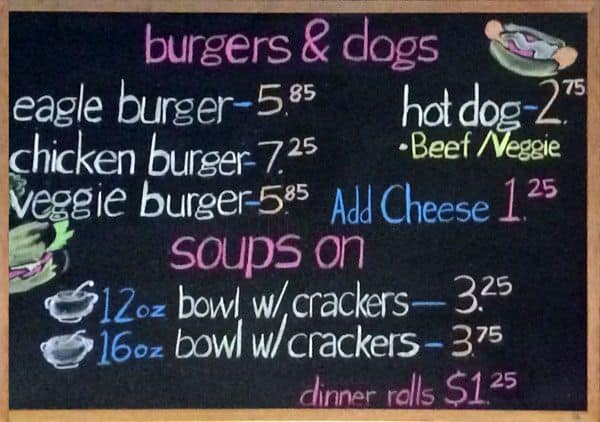 burgers & dogs
eagle burger-5.85
hot dog-2.75
chicken burger-7.25
•Beef/Veggie
veggie burger-5.85
Add Cheese 1.25
soups on
12oz bowl w/ crackers-3.25
16oz bowl w/ crackers-3.75
dinner rolls $1.25